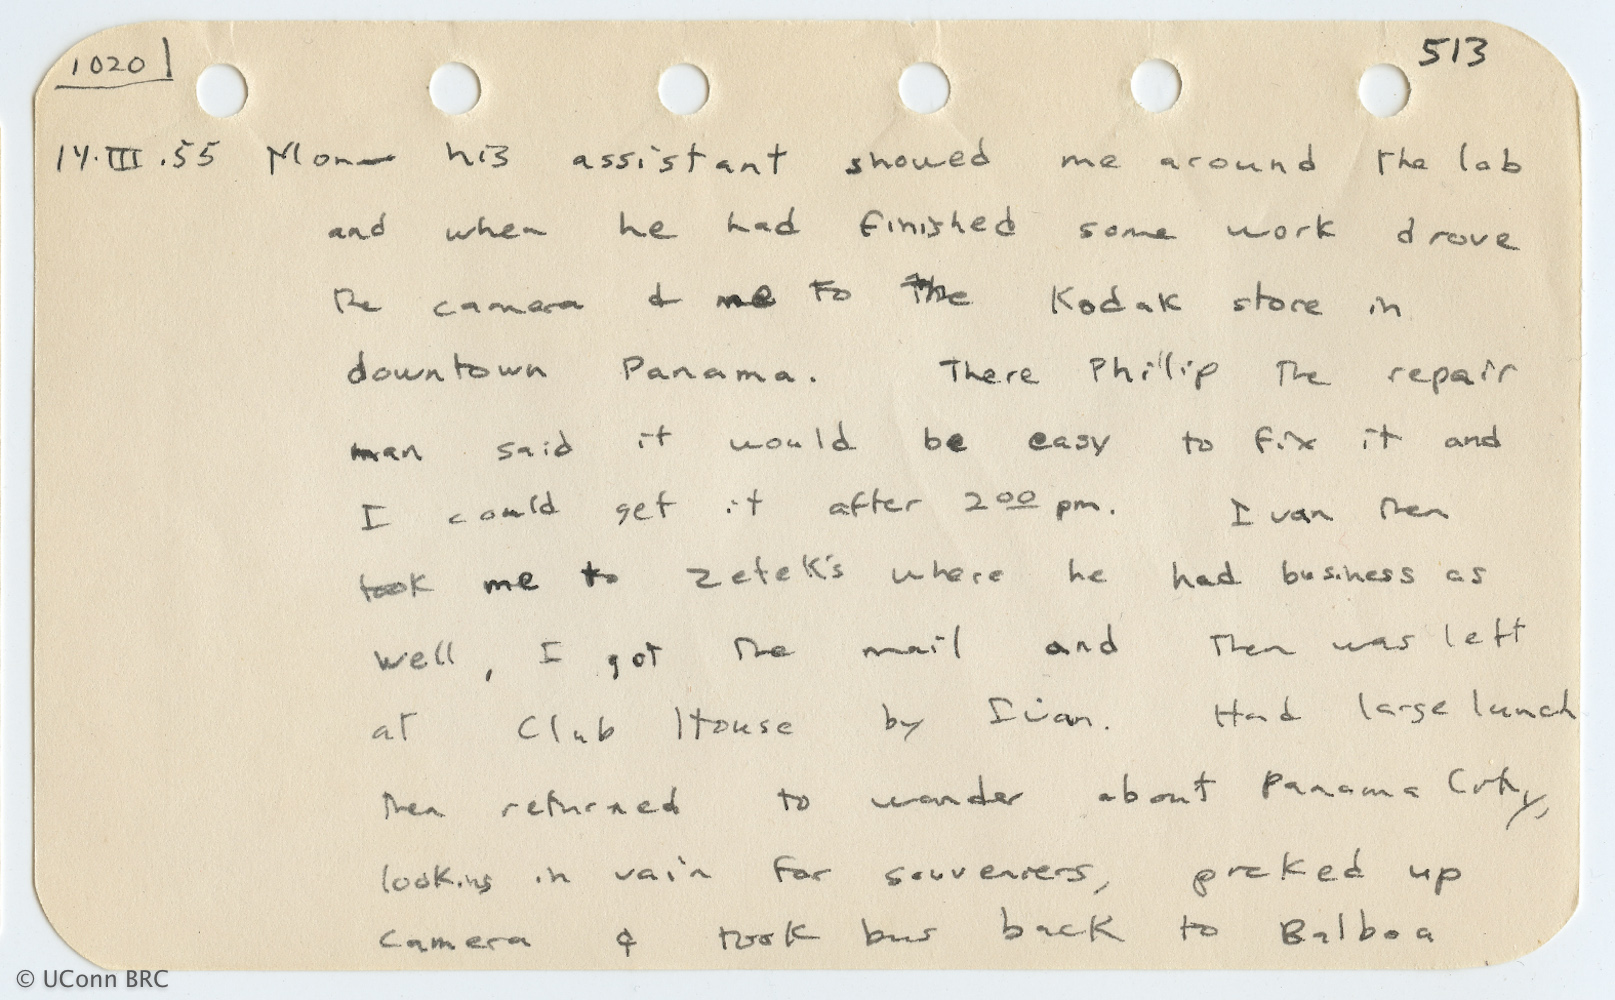 1020 513
14.III.55 Mon— his assistant showed me around the lab
and when he had finished some work drove
the camera & me to the Kodak store in
downtown Panama. There Phillip the repair
man said it would be easy to fix it and
I could get it after 2 00 pm. Ivan then
took me to Zetek's where he had business as
well, I got the mail and then was left
at Club House by Ivan. Had large lunch
then returned to wander about Panama City,
looking in vain for souveniers, picked up
camera & took bus back to Balboa
© UConn BRC